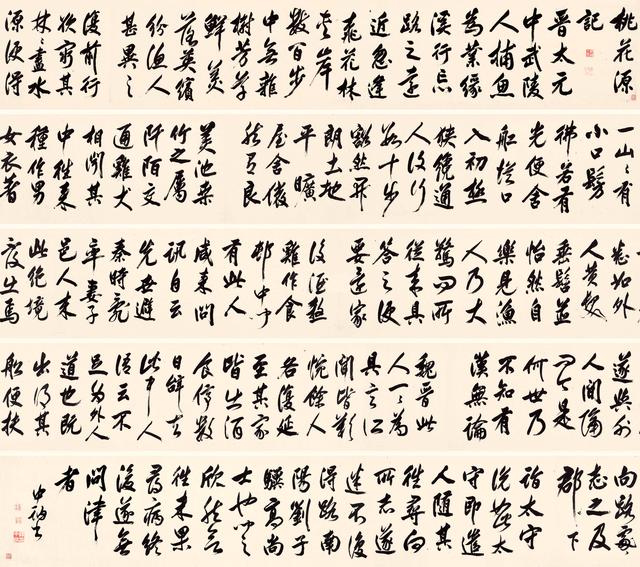 桃花源
記
晉太元
中武陵
人捕魚
為業緣
溪行忘
路之遠
近忽逢
桃花林
夾岸
數百步
中無雜
樹芳草
鮮美
落英繽
紛漁人
甚異之
復前行
欲窮其
林林盡水
源便得
一山山有
小口髣
彿若有
光便舍
船從口
入初極
狹纔通
人復行
數十步
豁然開
朗土地
平曠
屋舍儼
然有良
美池桑
竹之屬
阡陌交
通雞犬
相聞其
中往來
種作男
女衣著
悉如外
人黃髮
垂髫並
怡然自
樂見漁
人乃大
驚問所
從來具
答之便
要還家
設酒殺
雞作食
村中聞
有此人
咸來問
訊自云
先世避
秦時亂
率妻子
邑人來
此絕境
復出焉
遂與外
人間隔
問今是
何世乃
不知有
漢無論
魏晉此
人一一為
具言所
聞皆歎
惋餘人
各復延
至其家
皆出酒
食停數
日辭去
此中人
語云不
足為外人
道也既
出得其
船便扶
向路處
志之及
郡下
詣太守
說此太
守即遣
人隨其
往尋向
所志遂
迷不復
得路南
陽劉子
驥高尚
士也聞之
欣然
往未果
尋病終
後遂無
問津
者